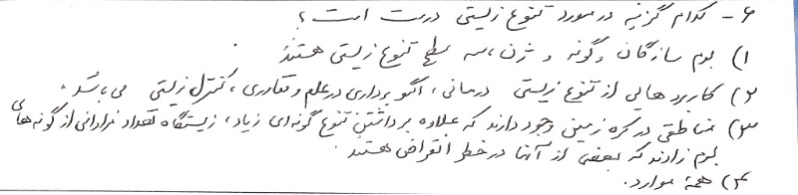 ۶- کدام گزینه در مورد تنوع زیستی درست است؟
۱) بوم سازگان و گونه و ژن، سه سطح تنوع زیستی هستند.
۲) کاربردهایی از تنوع زیستی درمانی، الگو برداری در علم و فناوری، کنترل زیستی می باشد.
۳) مناطقی در کره زمین وجود دارند که علاوه بر داشتن تنوع گونه ای زیاد، زیستگاه تعداد فراوانی از گونه های
بوم زادند که بعضی از آنها در خطر انقراض هستند.
۴) همهٔ موارد.